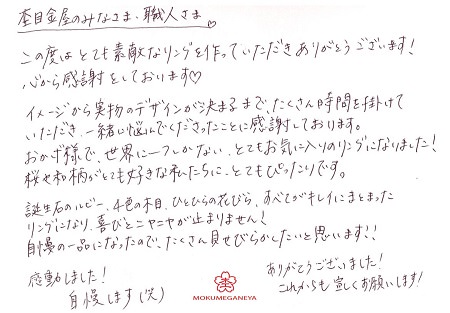 杢目金屋のみなさま、職人さま
この度はとても素敵なリングを作っていただきありがとうございます!
心から感謝をしております♡
イメージから実物のデザインが決まるまで、たくさん時間を掛けて
いただき、一緒に悩んでくださったことに感謝しております。
おかげ様で、世界に一つしかない、とてもお気に入りのリングになりました!
桜や和柄がとても好きな私たちに、とてもぴったりです。
誕生石のルビー、4色の木目、ひとひらの花びら、すべてがキレイにまとまった
リングになり、喜びとニヤニヤが止まりません!
自慢の一品になったので、たくさん見せびらかしたいと思います!!
感動しました!
自慢します(笑)
ありがとうございました!
これからも宜しくお願いします!
MOKUMEGANEYA